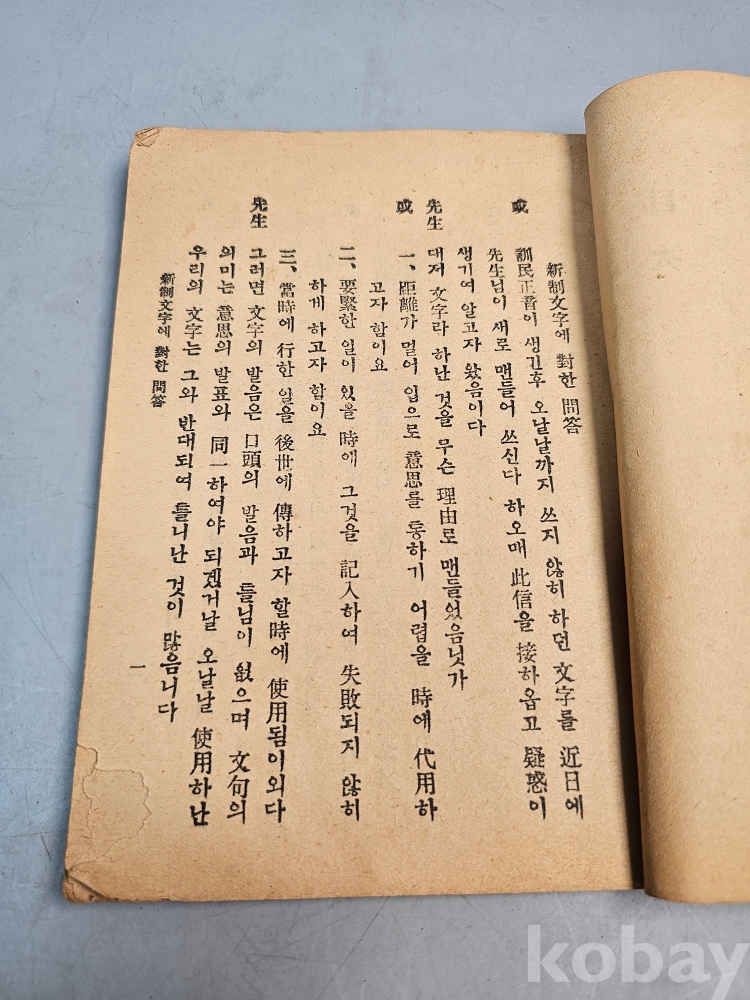 新制文字에 對한 問答
或 訓民正音이 생긴후 오날날까지 쓰지 않히 하던 文字를 近日에
先生님이 새로 맨들어 쓰신다 하오매 此信을 接하옵고 疑惑이
생기여 알고자 왔음이다
先生 대저 文字라 하난 것을 무슨 理由로 맨들었음닛가
或 一、距離가 멀어 입으로 意思를 통하기 어렵을 時에 代用하
고자 함이요
二、要緊한 일이 있을 時에 그것을 記入하여 失敗되지 않히
하게 하고자 함이요
三、當時에 行한 일을 後世에 傳하고자 할時에 使用됨이외다
先生 그러면 文字의 발음은 口頭의 발음과 틀님이 없으며 文句의
의미는 意思의 발표와 同一하여야 되겠거날 오날날 使用하난
우리의 文字는 그와 반대되여 틀니난 것이 많음니다
新制文字에 對한 問答
一
kobay